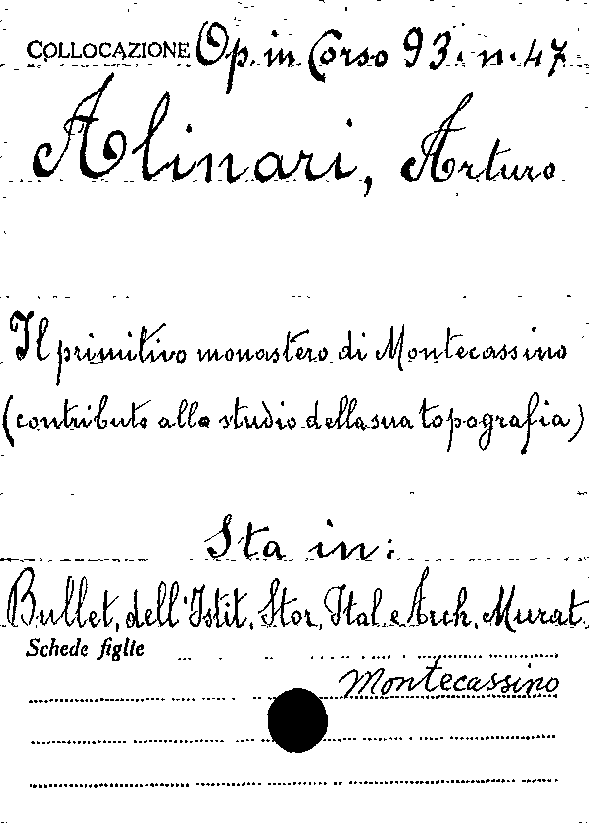 COLLOCAZIONE Op. in Corso 93. n. 47
Alinari, Arturo
Il primitivo monastero di Montecassino
(contributo allo studio della sua topografia)
Sta in:
Bullet. dell'Istit. Stor. Ital. e Arch. Murat.
Schede figlie
Montecassino